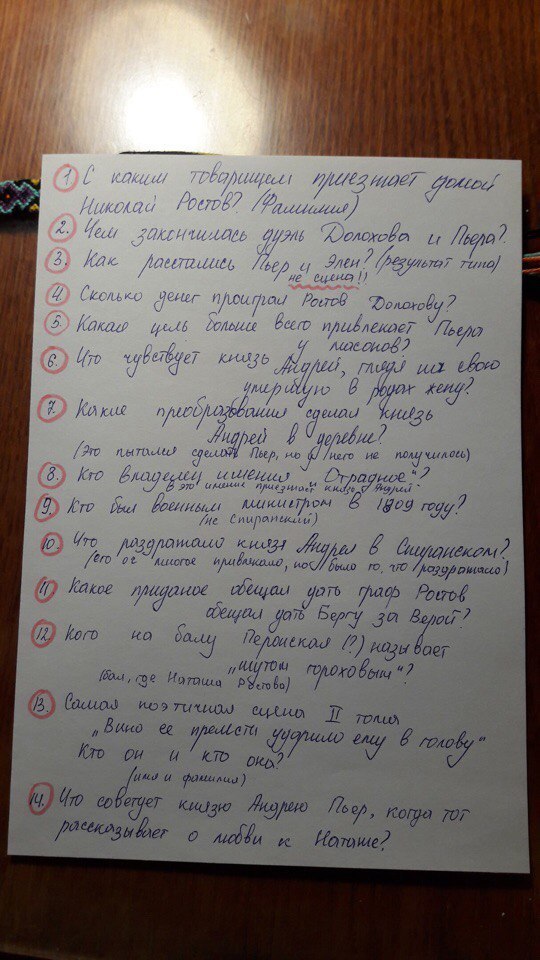 1. С каким товарищем приезжает домой
Николай Ростов? (Фамилия)
2. Чем закончилась дуэль Долохова и Пьера?
3. Как расстались Пьер и Элен? (результат типа)
не сцена!!
4. Сколько денег проиграл Ростов Долохову?
5. Какая цель больше всего привлекает Пьера
у масонов?
6. Что чувствует князь Андрей, глядя на свою
умершую в родах жену?
7. Какие преобразования сделал князь
Андрей в деревне?
(Это пытался сделать Пьер, но у него не получилось)
8. Кто владелец имения "Отрадное"?
в это имение приезжает князь Андрей
9. Кто был военным министром в 1809 году?
(не Сперанский)
10. Что раздражало князя Андрея в Сперанском?
(его оч многое привлекало, но было то, что раздражало)
11. Какое приданое обещал дать граф Ростов
обещал дать Бергу за Верой?
12. Кого на балу Перонская (?) называет
"шутом гороховым"?
(бал, где Наташа Ростова)
13. Самая поэтичная сцена II тома
"Вино ее прелести ударило ему в голову"
Кто он и кто она?
(имя и фамилия)
14. Что советует князю Андрею Пьер, когда тот
рассказывает о любви к Наташе?